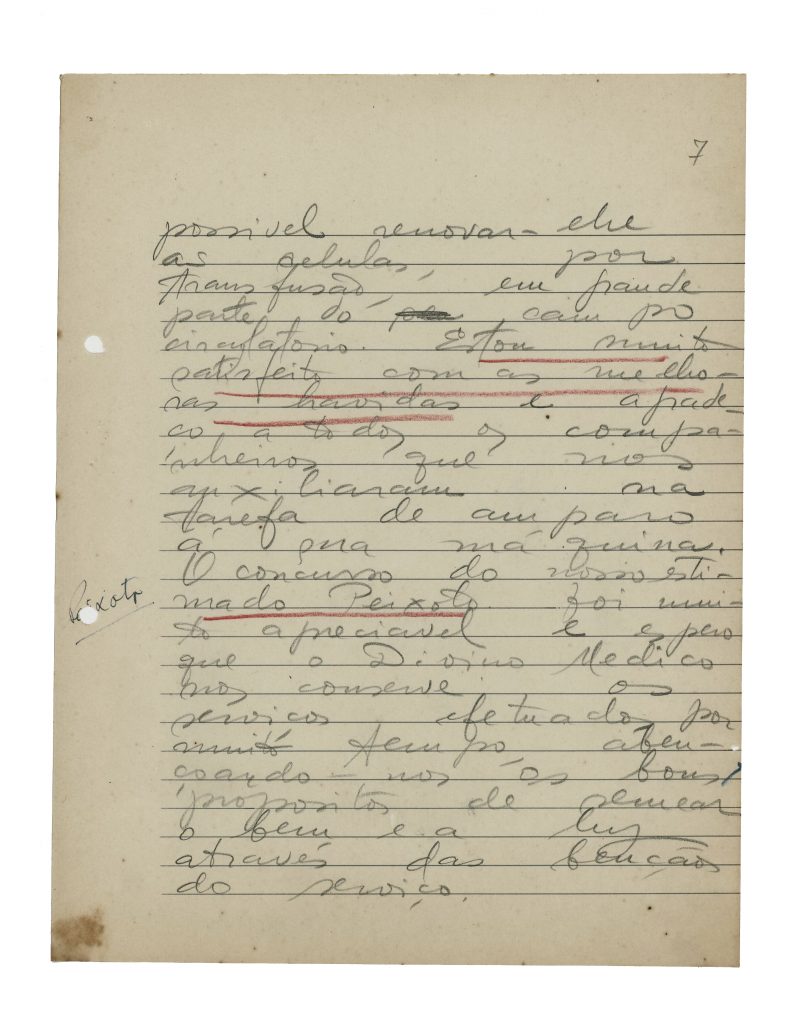 7
possivel renovar-lhe
as celulas, por
transfusão, em grande
parte do campo
circulatorio. Estou muito
satisfeito com as melho-
ras havidas e agrade-
ço a todos os compa-
nheiros que nos
auxiliaram na
tarefa de amparo
á sua máquina.
O concurso do nosso esti-
mado Peixoto foi mui-
Peixoto
to apreciavel e espero
que o Divino Medico
nos conserve os
serviços efetuados por
muito tempo, aben-
çoando-nos os bons
propositos de semear
o bem e a luz
através das bençãos
do serviço.